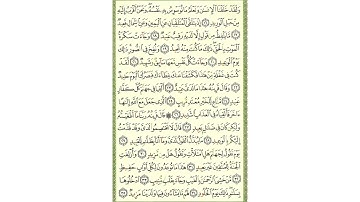 وَلَقَدْ خَلَقْنَا ٱلْإِنسَٰنَ وَنَعْلَمُ مَا تُوَسْوِسُ بِهِۦ نَفْسُهُۥ وَنَحْنُ أَقْرَبُ إِلَيْهِ
مِنْ حَبْلِ ٱلْوَرِيدِ ١٦ إِذْ يَتَلَقَّى ٱلْمُتَلَقِّيَانِ عَنِ ٱلْيَمِينِ وَعَنِ ٱلشِّمَالِ قَعِيدٌ
١٧ مَّا يَلْفِظُ مِن قَوْلٍ إِلَّا لَدَيْهِ رَقِيبٌ عَتِيدٌ ١٨ وَجَآءَتْ سَكْرَةُ
ٱلْمَوْتِ بِٱلْحَقِّ ذَٰلِكَ مَا كُنتَ مِنْهُ تَحِيدُ ١٩ وَنُفِخَ فِى ٱلصُّورِ ذَٰلِكَ
يَوْمُ ٱلْوَعِيدِ ٢٠ وَجَآءَتْ كُلُّ نَفْسٍ مَّعَهَا سَآئِقٌ وَشَهِيدٌ ٢١ لَّقَدْ
كُنتَ فِى غَفْلَةٍ مِّنْ هَٰذَا فَكَشَفْنَا عَنكَ غِطَآءَكَ فَبَصَرُكَ ٱلْيَوْمَ حَدِيدٌ
٢٢ وَقَالَ قَرِينُهُۥ هَٰذَا مَا لَدَىَّ عَتِيدٌ ٢٣ أَلْقِيَا فِى جَهَنَّمَ كُلَّ كَفَّارٍ
عَنِيدٍ ٢٤ مَّنَّاعٍ لِّلْخَيْرِ مُعْتَدٍ مُّرِيبٍ ٢٥ ٱلَّذِى جَعَلَ مَعَ ٱللَّهِ إِلَٰهًا
ءَاخَرَ فَأَلْقِيَاهُ فِى ٱلْعَذَابِ ٱلشَّدِيدِ ٢٦ ۞ قَالَ قَرِينُهُۥ رَبَّنَا مَآ أَطْغَيْتُهُۥ
وَلَٰكِن كَانَ فِى ضَلَٰلٍۭ بَعِيدٍ ٢٧ قَالَ لَا تَخْتَصِمُوا۟ لَدَىَّ وَقَدْ قَدَّمْتُ
إِلَيْكُم بِٱلْوَعِيدِ ٢٨ مَا يُبَدَّلُ ٱلْقَوْلُ لَدَىَّ وَمَآ أَنَا۠ بِظَلَّٰمٍ لِّلْعَبِيدِ ٢٩
يَوْمَ نَقُولُ لِجَهَنَّمَ هَلِ ٱمْتَلَأْتِ وَتَقُولُ هَلْ مِن مَّزِيدٍ ٣٠ وَأُزْلِفَتِ
ٱلْجَنَّةُ لِلْمُتَّقِينَ غَيْرَ بَعِيدٍ ٣١ هَٰذَا مَا تُوعَدُونَ لِكُلِّ أَوَّابٍ حَفِيظٍ
٣٢ مَّنْ خَشِىَ ٱلرَّحْمَٰنَ بِٱلْغَيْبِ وَجَآءَ بِقَلْبٍ مُّنِيبٍ ٣٣ ٱدْخُلُوهَا
بِسَلَٰمٍ ذَٰلِكَ يَوْمُ ٱلْخُلُودِ ٣٤ لَهُم مَّا يَشَآءُونَ فِيهَا وَلَدَيْنَا مَزِيدٌ ٣٥